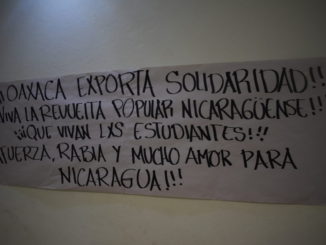 ¡¡OAXACA EXPORTA SOLIDARIDAD!!
VIVA LA REVUELTA POPULAR NICARAGÜENSE!!
¡¡¡QUE VIVAN LXS ESTUDIANTES!!!
FUERZA, RABIA Y MUCHO AMOR PARA
NICARAGUA!!!